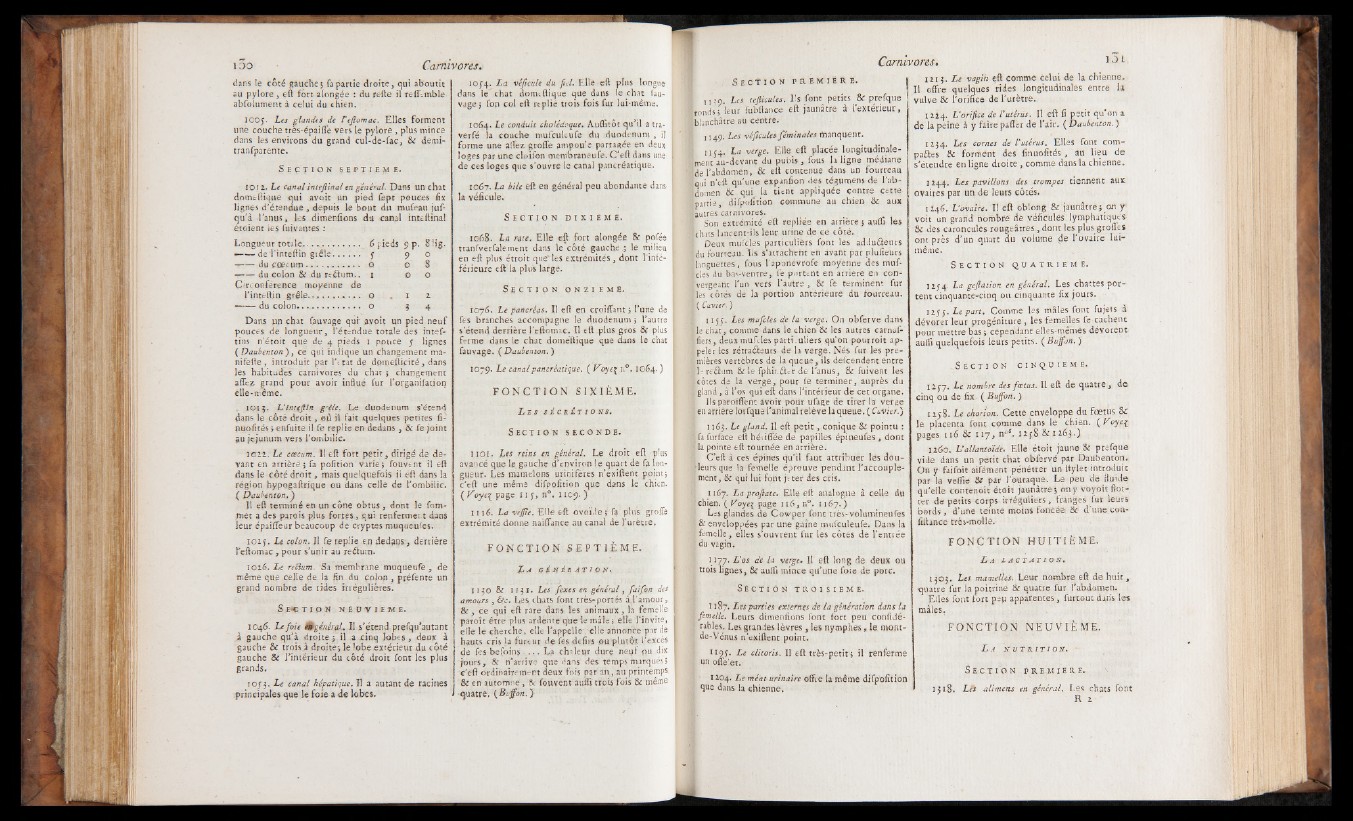 130 Carnivores.
dans le côté gauche; sa partie droite, qui aboutit
au pylore, est fort alongée : du reste il ressemble
absolument à celui du chien.
1005. Les glandes de l'estomac. Elles forment
une couche très-épaisse vers le pylore, plus mince
dans les environs du grand cul-de-sac, & demi-
transparente.
SECTION SEPTIEME.
1012. Le canal intestinal en général. Dans un chat
domestique qui avoit un pied sept pouces six
lignes d'étendue, depuis le bout du museau jus-
qu'à l'anus, les dimensions du canal intestinal
étoient les suivantes :
Longueur totale............ 6 pieds 9 p. 8 lig.
—— de l'intestin grêle...... 5 9 0
—— du cœcum............. 0 0 8
—— du colon & du rectum.. 1 0 0
Circonférence moyenne de
l'intestin grêle............ 0 1 2
—— du colon.............. 0 3 4
Dans un chat sauvage qui avoit un pied neuf
pouces de longueur, l'étendue totale des intes-
tins n'étoit que de 4 pieds 1 pouce 5 lignes
(Daubenton), ce qui indique un changement ma-
nifeste, introduit par l'état de domesticité, dans
les habitudes carnivores du chat; changement
assez grand pour avoir influé sur l'organisation
elle-même.
1013. L'intestin grêle. Le duodenum s'étend
dans le côté droit, où il fait quelques petites si-
nuosités; ensuite il se replie en dedans, & se joint
au jejunum vers l'ombilic.
1022. Le cæcum. Il est fort petit, dirigé de de-
vant en arrière; sa position varie; souvent il est
dans le côté droit, mais quelquefois il est dans la
région hypogastrique ou dans celle de l'ombilic.
(Daubenton.)
Il est terminé en un cône obtus, dont le som-
met a des parois plus fortes, qui renferment dans
leur épaisseur beaucoup de cryptes muqueuses.
1025. Le colon. Il se replie en dedans, derrière
l'estomac, pour s'unir au rectum.
1026. Le rectum. Sa membrane muqueuse, de
même que celle de la fin du colon, présente un
grand nombre de rides irrégulières.
SECTION NEUVIEME.
1046. Le foie en général. Il s'étend presqu'autant
à gauche qu'à droite; il a cinq lobes, deux à
gauche & trois à droite; le lobe extérieur du côté
gauche & l'intérieur du côté droit sont les plus
grands.
1053. Le canal hépatique. Il a autant de racines
principales que le foie a de lobes.
1054. La vésicule du fiel. Elle est plus longue
dans le chat domestique que dans le chat sau-
vage; son col est replié trois fois sur lui-même.
1064. Le conduit cholédoque. Aussitôt qu'il a tra-
versé la couche musculeuse du duodenum, il
forme une assez grosse ampoule partagée en deux
loges par une cloison membraneuse. C'est dans une
de ces loges que s'ouvre le canal pancréatique.
1067. La bile est en général peu abondante dans
la vésicule.
SECTION DIXIEME.
1068. La rate. Elle est fort alongée & posée
transversalement dans le côté gauche; le milieu
en est plus étroit que les extrémités, dont l'infé-
rieure est la plus large.
SECTION ONZIEME.
1076. Le pancréas. Il est en croissant; l'une de
ses branches accompagne le duodenum; l'autre
s'étend derrière l'estomac. Il est plus gros & plus
ferme dans le chat domestique que dans le chat
sauvage. (Daubenton.)
1079. Le canal pancréatique. (Voyez n°. 1064.)
FONCTION SIXIÈME.
LES SÉCRÉTIONS.
SECTION SECONDE.
1101. Les reins en général. Le droit est plus
avancé que le gauche d'environ le quart de sa lon-
gueur. Les mamelons urinifères n'existent point;
c'est une même disposition que dans le chien.
(Voyez page 115, n°. 1109.)
1116. La vessie. Elle est ovoïde; sa plus grosse
extrémité donne naissance au canal de l'urètre.
FONCTION SEPTIÈME.
LA GÉNÉRATION.
1130 & 1131. Les sexes en général, saison des
amours, &c. Les chats sont très-portés à l'amour,
&, ce qui est rare dans les animaux, la femelle
paroît être plus ardente que le mâle; elle l'invite,
elle le cherche, elle l'appelle elle annonce par de
hauts cris la fureur de ses desirs ou plutôt l'excès
de ses besoins .... La chaleur dure neuf ou dix
jours, & n'arrive que dans des temps marqués;
c'est ordinairement deux fois par an, au printemps
& en automne, & souvent aussi trois fois & même
quatre. (Buffon.)
Carnivores. 131
SECTION PREMIERE.
1139. Les testicules. Ils sont petits & presque
ronds; leur substance est jaunâtre à l'extérieur,
blanchâtre au centre.
1149. Les vésicules séminales manquent.
1154. La verge. Elle est placée longitudinale-
ment au-devant du pubis, sous la ligne médiane
de l'abdomen, & est contenue dans un fourreau
qui n'est qu'une expansion des tégumens de l'ab-
domen & qui la tient appliquée contre cette
partie, disposition commune au chien & aux
autres carnivores.
Son extrémité est repliée en arrière; aussi les
chats lancent-ils leur urine de ce côté.
Deux muscles particuliers sont les adducteurs
du fourreau. Ils s'attachent en avant par plusieurs
languettes, sous l'aponévrose moyenne des mus-
cles du bas-ventre, se portent en arrière en con-
vergeant l'un vers l'autre, & se terminent sur
les côtés de la portion antérieure du fourreau.
(Cuvier.)
1155. Les muscles de la verge. On observe dans
le chat, comme dans le chien & les autres carnas-
siers, deux muscles particuliers qu'on pourroit ap-
peler les rétracteurs de la verge. Nés sur les pre-
mières vertèbres de la queue, ils descendent entre
le rectum & le sphincter de l'anus, & suivent les
côtés de la verge, pour se terminer, auprès du
gland, à l'os qui est dans l'intérieur de cet organe.
Ils paroissent avoir pour usage de tirer la verge
en arrière lorsque l'animal relève la queue. (Cuvier.)
1163. Le gland. Il est petit, conique & pointu :
sa surface est hérissée de papilles épineuses, dont
la pointe est tournée en arrière.
C'est à ces épines qu'il faut attribuer les dou-
leurs que la femelle éprouve pendant l'accouple-
ment, & qui lui font jeter des cris.
1167. La prostate. Elle est analogue à celle du
chien. (Voyez page 116, n°. 1167.)
Les glandes de Cowper sont très-volumineuses
& enveloppées par une gaine musculeuse. Dans la
femelle, elles s'ouvrent sur les côtés de l'entrée
du vagin.
1177. L'os de la verge. Il est long de deux ou
trois lignes, & aussi mince qu'une soie de porc.
SECTION TROISIEME.
1187. Les parties externes de la génération dans la
femelle. Leurs dimensions sont fort peu considé-
rables. Les grandes lèvres, les nymphes, le mont-
de-Vénus n'existent point.
1195. Le clitoris. Il est très-petit; il renferme
un osselet.
1204. Le méat urinaire offre la même disposition
que dans la chienne.
1213. Le vagin est comme celui de la chienne.
Il offre quelques rides longitudinales entre la
vulve & l'orifice de l'urètre.
1224. L'orifice de l'utérus. Il est si petit qu'on a
de la peine à y faire passer de l'air. (Daubenton.)
1234. Les cornes de l'utérus. Elles sont com-
pactes & forment des sinuosités, au lieu de
s'étendre en ligne droite, comme dans la chienne.
1244. Les pavillons des trompes tiennent aux
ovaires par un de leurs côtés.
1246. L'ovaire. Il est oblong & jaunâtre; on y
voit un grand nombre de vésicules lymphatiques
& des caroncules rougeâtres, dont les plus grosses
ont près d'un quart du volume de l'ovaire lui-
même.
SECTION QUATRIEME.
1254. La gestation en général. Les chattes por-
tent cinquante-cinq ou cinquante six jours.
1255. Le part. Comme les mâles sont sujets à
dévorer leur progéniture, les femelles se cachent
pour mettre bas; cependant elles-mêmes dévorent
aussi quelquefois leurs petits. (Buffon.)
SECTION CINQUIEME.
1257. Le nombre des fœtus. Il est de quatre, de
cinq ou de six. (Buffon.)
1258. Le chorion. Cette enveloppe du fœtus &
le placenta sont comme dans le chien. (Voyez
pages 116 & 117, nos. 1258 & 1263.)
1260. L'allantoïde. Elle étoit jaune & presque
vide dans un petit chat observé par Daubenton.
On y faisoit aisément pénétrer un stylet introduit
par la vessie & par l'ouraque. Le peu de fluide
qu'elle contenoit étoit jaunâtre; on y voyoit flot-
ter de petits corps irréguliers, frangés sur leurs
bords, d'une teinte moins foncée & d'une con-
sistance très-molle.
FONCTION HUITIÈME.
LA LACTATION.
1303. Les mamelles. Leur nombre est de huit,
quatre sur la poitrine & quatre sur l'abdomen.
Elles sont fort peu apparentes, surtout dans les
mâles.
FONCTION NEUVIÈME.
LA NUTRITION.
SECTION PREMIERE.
1318. Les alimens en général. Les chats sont
R 2